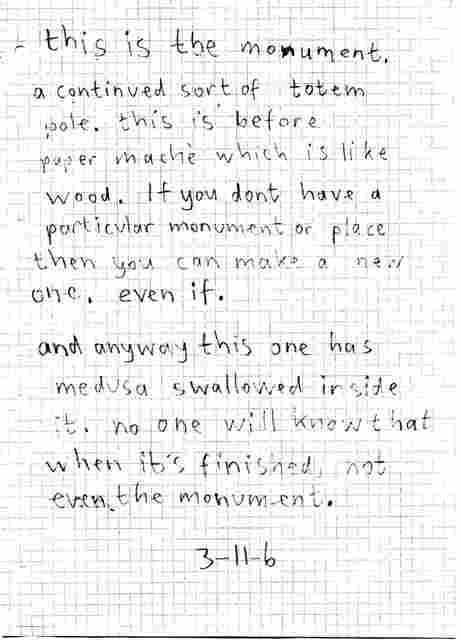 this is the monument.
a continued sort of totem
pole. this is before
paper maché which is like
wood. If you dont have a
particular monument or place
then you can make a new
one. even if.
and anyway this one has
medusa swallowed inside
it. no one will know that
when it's finished, not
even the monument.
3-11-6